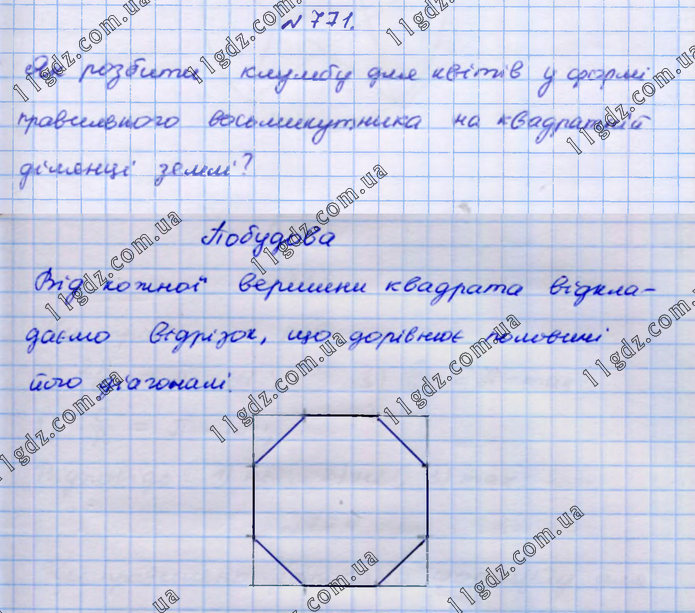 № 771.
Як розбити клумбу для квітів у формі
правильного восьмикутника на квадратній
ділянці землі?
Побудова
Від кожної вершини квадрата відкла-
даємо відрізок, що дорівнює половині
його діагоналі.
11gdz.com.ua
11gdz.com.ua
11gdz.com.ua
11gdz.com.ua
11gdz.com.ua
11gdz.com.ua
11gdz.com.ua
11gdz.com.ua
11gdz.com.ua
11gdz.com.ua
11gdz.com.ua
11gdz.com.ua